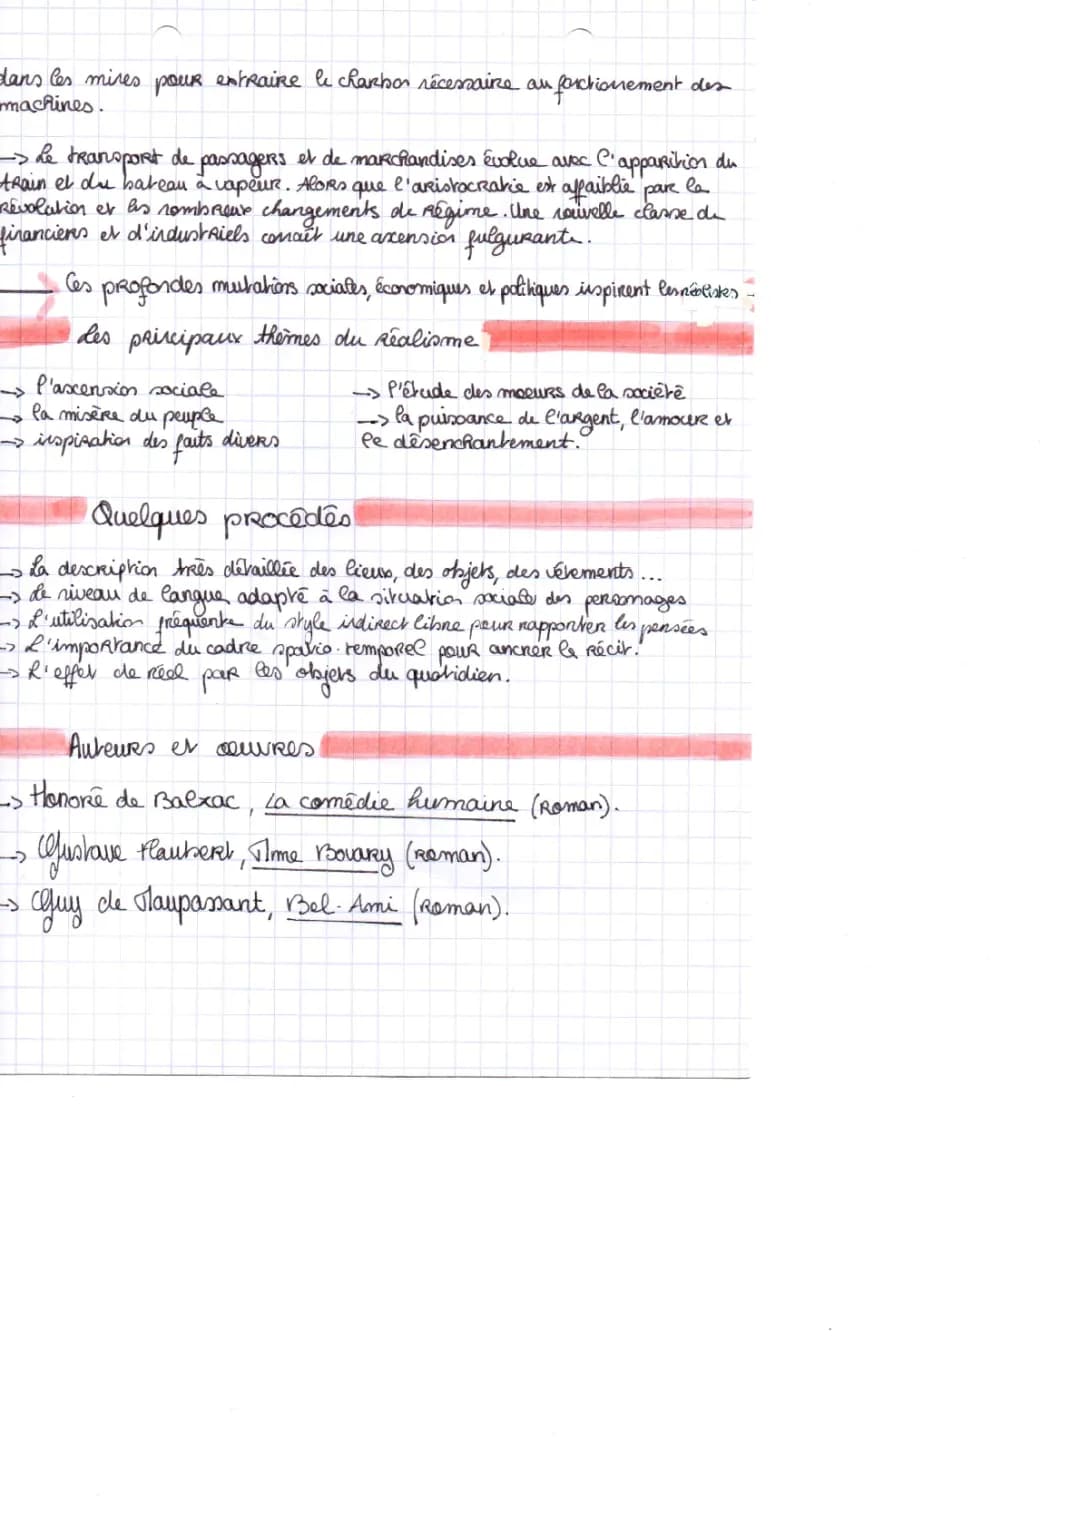 dans les mines pour entraire le charbon nécessaire au fonctionement des
machines.
-> Le transport de passagers et de marchandises évolue avec l'apparition du
train et du bateau à vapeur. Alors que l'aristocratie est affaiblie par la
Révolution et les nombreux changements de régime. Une nouvelle classe de
financiers et d'industriels connaît une axension fulgurante.
Ces profondes mutations sociales, économiques et politiques inspirent les réalistes
Les principaux thèmes du Réalisme
-> l'ascension sociale
-> la misère du peuple
-> inspiration des faits divers
-> l'étude des moeurs de la société
-> la puissance de l'argent, l'amour et
le désenchantement.
Quelques procédés
-> La description très détaillée des lieux, des objets, des vêtements...
-> Le niveau de langue adapté à la situation sociale des personnages
-> L'utilisation fréquente du style indirect libre pour rapporter les pensées
-> L'importance du cadre spatio-temporel pour ancrer le récit.
-> L'effet de réel par les objets du quotidien.
Auteurs et œuvres
-> Honoré de Balzac, La comédie humaine (Roman).
-> Gustave Flaubert, Mme Bovary (Roman).
-> Guy de Maupassant, Bel-Ami (Roman).